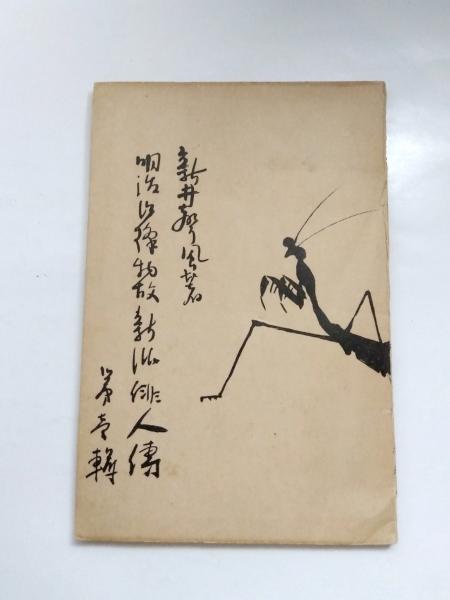 新井聲風著
明治以降物故新派俳人傳
第壱輯